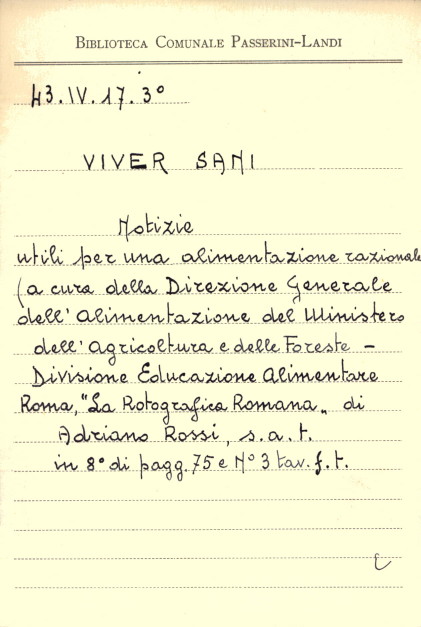 BIBLIOTECA COMUNALE PASSERINI-LANDI
43.IV.17.3°
VIVER SANI
Notizie
utili per una alimentazione razionale
(a cura della Direzione Generale
dell'Alimentazione del Ministero
dell'Agricoltura e delle Foreste -
Divisione Educazione Alimentare
Roma, "La Rotografica Romana„ di
Adriano Rossi, s.a.t.
in 8° di pagg. 75 e N° 3 tav. f.t.